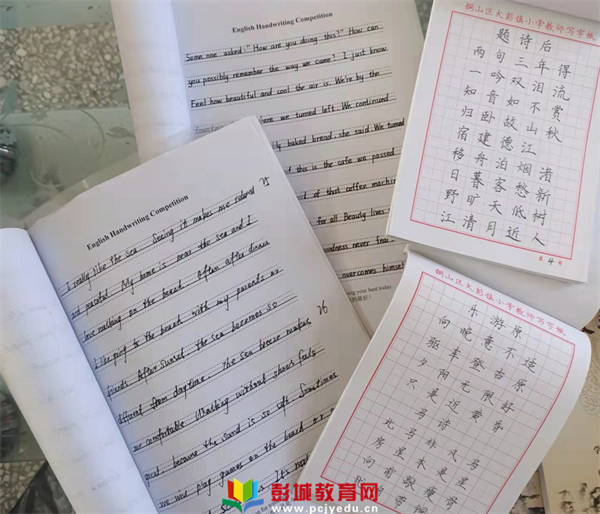 English Handwriting Competition
Some one asked:" How are you doing this?" How can
you possibly remember the way we came? I just know.
Feel how beautiful and cool the air is. We're by the
here we turned left. We continued
baked bread, she said. We turned
this is the cafe we passed
of that coffee machin
for all Beauty lives
never fear
overcomes himself
your best today.
English Handwriting Competition
75
I really like the sea. Seeing it makes me relaxed
and peaceful. My home is near the sea and I
love walking on the beach. Often after dinner
I like going to the beach with my parents or
friends. After sunset the sea becomes so
76
different from daytime. The sea breeze makes
me comfortable. Walking without shoes feels
great because the sand is so soft. Sometimes
we will play games on the beach or
铜山区大彭镇小学教师写字纸
题诗后
两句三年得
一吟双泪流
知音如不赏
归卧故山秋
宿建德江
移舟泊烟渚
日暮客愁新
野旷天低树
江清月近人
铜山区大彭镇小学教师写字纸
乐游原
向晚意不适
驱车登古原
夕阳无限好
只是近黄昏
马诗
此马非凡马
房星本是星
向前敲瘦骨
彭城教育网
www.pcjyedu.cn